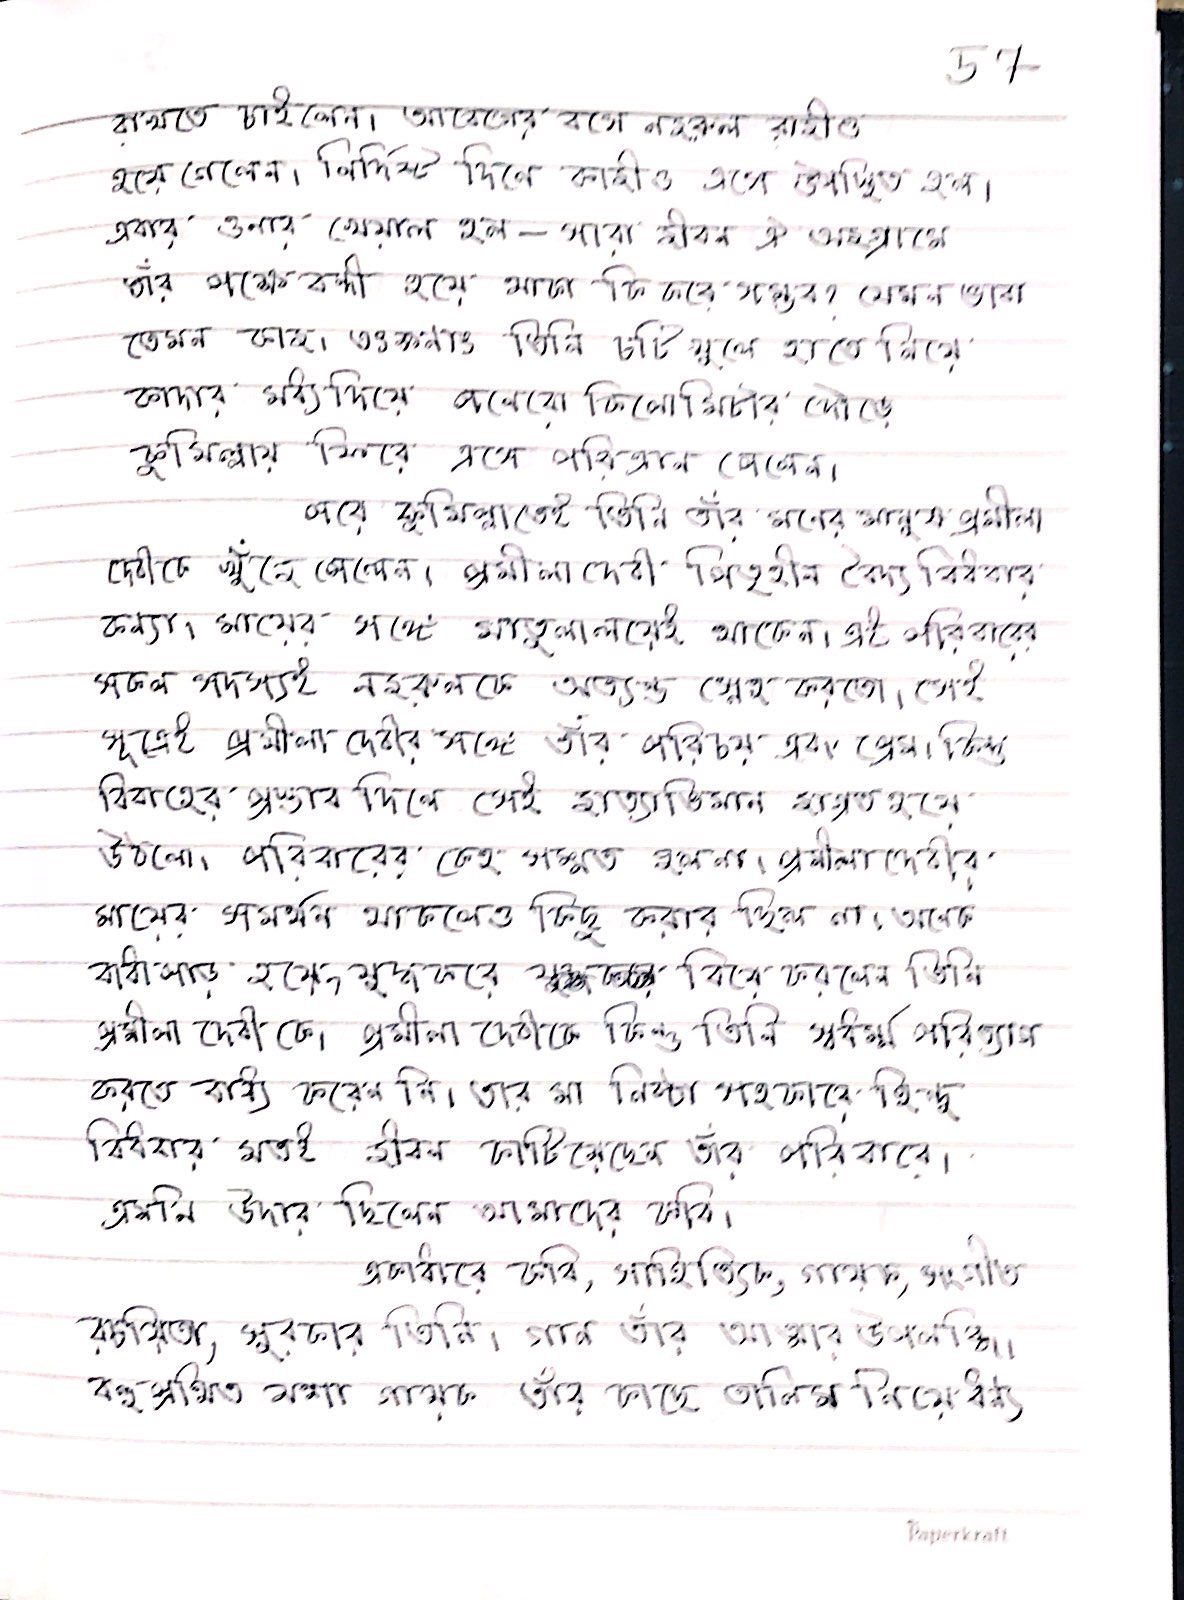 57
রাখতে চাইলেন। আবেগের বশে নজরুল রাজীও
হয়ে গেলেন। নির্দিষ্ট দিনে কাজীও এসে উপস্থিত হল।
এবার ওনার খেয়াল হল – সারা জীবন ঐ অজগ্রামে
তাঁর পক্ষে বন্দী হয়ে থাকা কি করে সম্ভব? যেমন ভাবা
তেমন কাজ। তৎক্ষনাৎ তিনি চটি খুলে হাতে নিয়ে
কাদার মধ্যদিয়ে পনেরো কিলোমিটার দৌড়ে
কুমিল্লায় ফিরে এসে পরিত্রান পেলেন।
পরে কুমিল্লাতেই তিনি তাঁর মনের মানুষ প্রমীলা
দেবীকে খুঁজে পেলেন। প্রমীলা দেবী পিতৃহীন বৈদ্য বিধবার
কন্যা। মায়ের সঙ্গে মাতুলালয়েই থাকেন। এই পরিবারের
সকল সদস্যই নজরুলকে অত্যন্ত স্নেহ করতো। সেই
সূত্রেই প্রমীলা দেবীর সঙ্গে তাঁর পরিচয় এবং প্রেম। কিন্তু
বিবাহের প্রস্তাব দিলে সেই জাত্যাভিমান জাগ্রত হয়ে
উঠলো। পরিবারের কেহ সম্মত হলনা। প্রমীলা দেবীর
মায়ের সমর্থন থাকলেও কিছু করার ছিল না। অনেক
বাধা পাড় হয়ে, যুদ্ধ করে বিয়ে করলেন তিনি
প্রমীলা দেবী কে। প্রমীলা দেবীকে কিন্তু তিনি স্বধর্ম্ম পরিত্যাগ
করতে বাধ্য করেন নি। তার মা নিষ্ঠা সহকারে হিন্দু
বিধবার মতই জীবন কাটিয়েছেন তাঁর পরিবারে।
এমনি উদার ছিলেন আমাদের কবি।
একাধারে কবি, সাহিত্যিক, গায়ক, সংগীত
রচয়িতা, সুরকার তিনি। গান তাঁর আত্মার উপলব্ধি।
বহু প্রথিত যশা গায়ক তাঁর কাছে তালিম নিয়ে ধন্য
Paperkraft